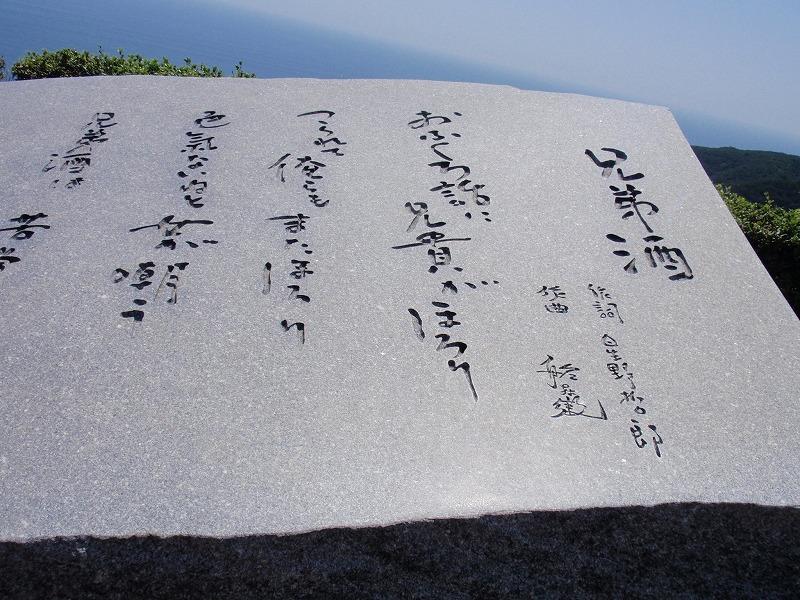 兄弟酒
作詞 星野哲郎
作曲 船村徹
おふくろ話に 兄貴がほろり
つられて俺らも またほろり
色気ないねと が 嘲う
兄弟酒は